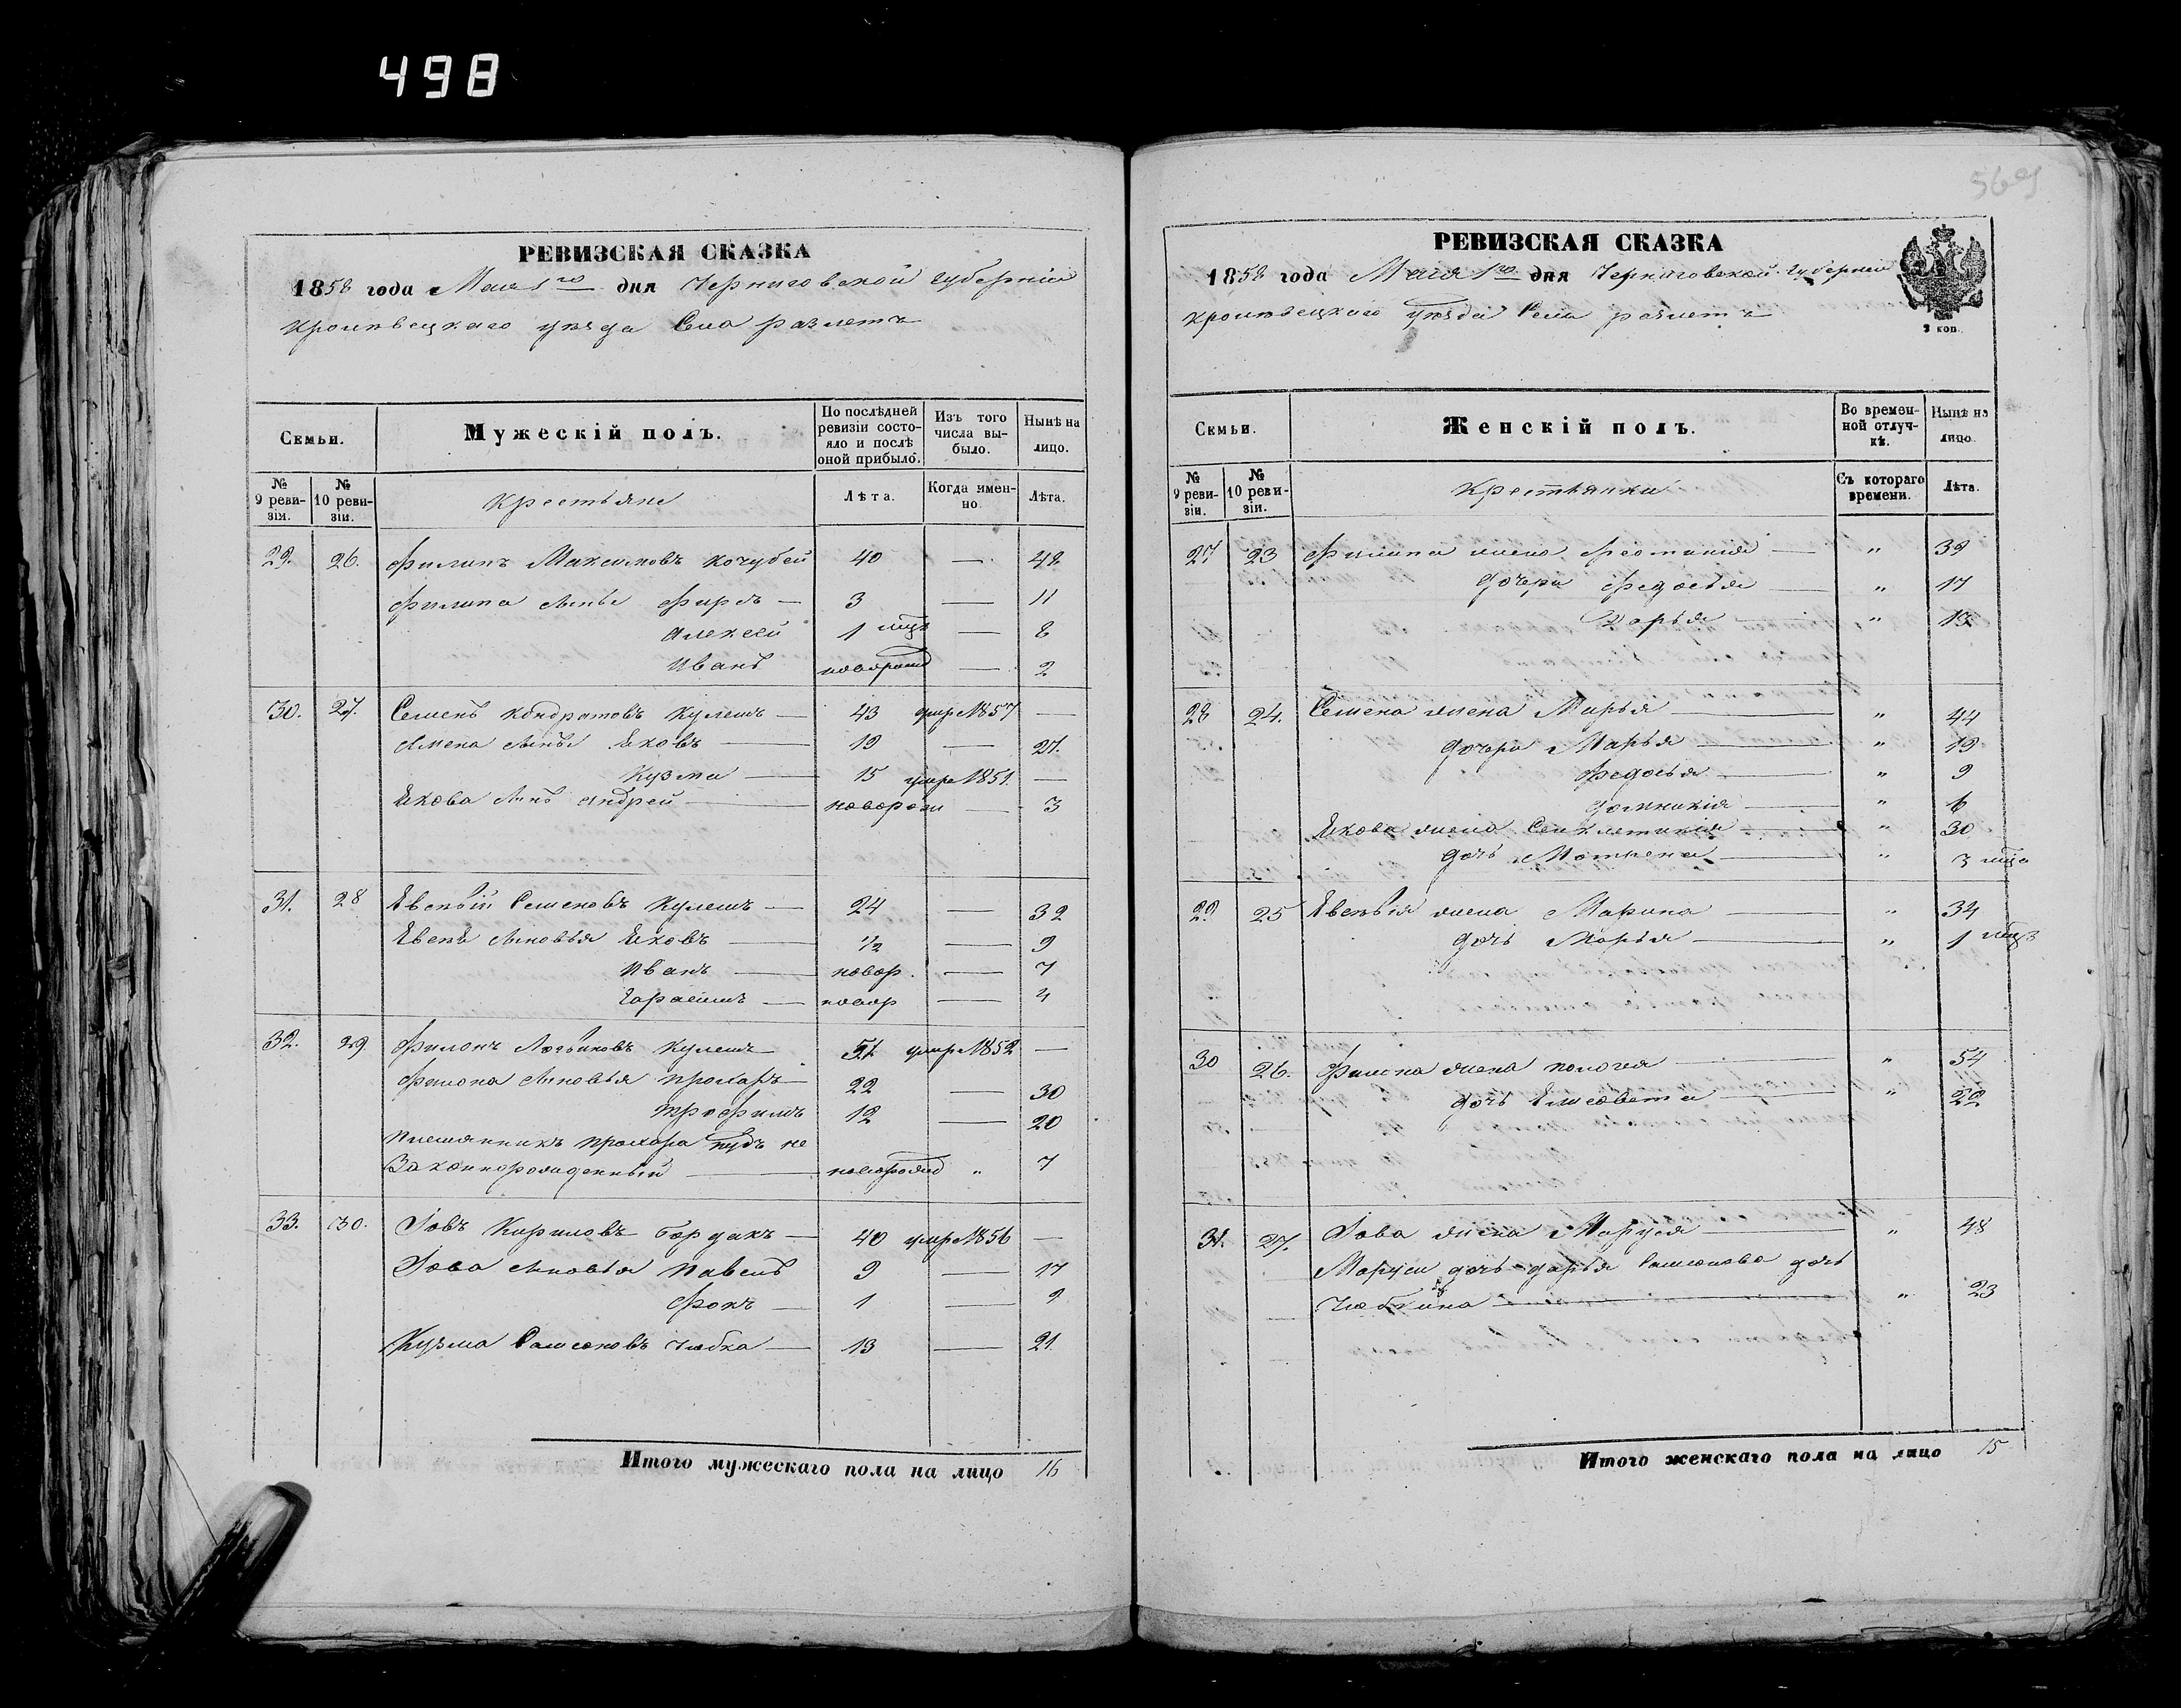 498
РЕВИЗСКАЯ СКАЗКА
1858 года Мая 1го дня Черниговской губерніи
Кролевецкаго уезда Села
Семьи.
Мужескій полъ.
По послѣдней ревизіи состояло и послѣ оной прибыло.
Изъ того числа выбыло.
Нынѣ на лицо.
№ 9 ревизіи.
№ 10 ревизіи.
Крестьяне
Лѣта.
Когда именно.
Лѣта.
29. 26. Филипъ Максимовъ Кочубей 40 — 48
Филипа сынъя Фирсъ — 3 — 11
Алексей 1 мцъ — 8
Иванъ новорожд — 2
30. 27. Семенъ Кондратовъ Кулешъ — 43 умре 1857 —
сыны Яковъ — 19 — 27.
Кузма — 15 умре 1851. —
Якова сынъ Андрей — новорож — 3
31. 28 Семеновъ Кулешъ — 24 — 32
сыновья Яковъ — 1/2 — 9
Иванъ — новор. — 7
Герасимъ — новор — 4
32. 29. Филонъ Кулешъ 51 умре 1852 —
Филона сыновья Прохоръ 22 — 30
Трофимъ 12 — 20
Племянникъ Прохора не
Законнорожденный — новорожд „ 7
33. 30. Іовъ Кириловъ Бордакъ — 40 умре 1856 —
Іова сыновья Павелъ 9 — 17
Фокъ — 1 — 9
Кузма Самсоновъ Чабка — 13 — 21.
Итого мужескаго пола на лицо 16
РЕВИЗСКАЯ СКАЗКА
1858 года Мая 1го дня Черниговской губерніи
Кролевецкаго уезда Села
2 коп.
Семьи.
Женскій полъ.
Во временной отлучкѣ.
Нынѣ на лицо.
№ 9 ревизіи.
№ 10 ревизіи.
Крестьянки
Съ котораго времени.
Лѣта.
27 23 Филипа жена — „ 39
дочери Федосья — „ 17
Дарья — „ 13
28 24. Семена жена Марья — „ 44
дочери Марья — „ 19
Федосья — „ 9
Домникія — „ 6
Якова жена Синклетикія — „ 30
дочь Мотрена — „ 3 мца
29. 25 жена Марина — „ 34
дочь Марья — „ 1 мцъ
30 26. Филона жена Пологея — „ 54
дочь Елисовета — „ 22
31. 27. Іова жена Маруся — „ 48
Маруси дочь Дарья Самсонова дочь
Чабкина — „ 23
Итого женскаго пола на лицо 15